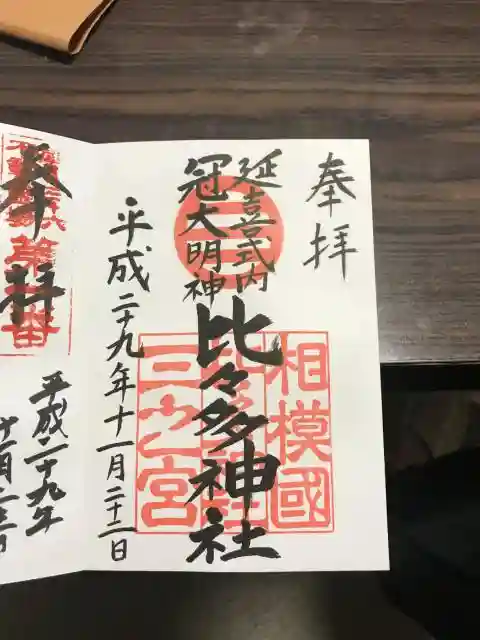 奉拝
延喜式内
冠大明神
比々多神社
相模國
三之宮
平成二十九年十一月二十二日
奉拝
平成二十九年